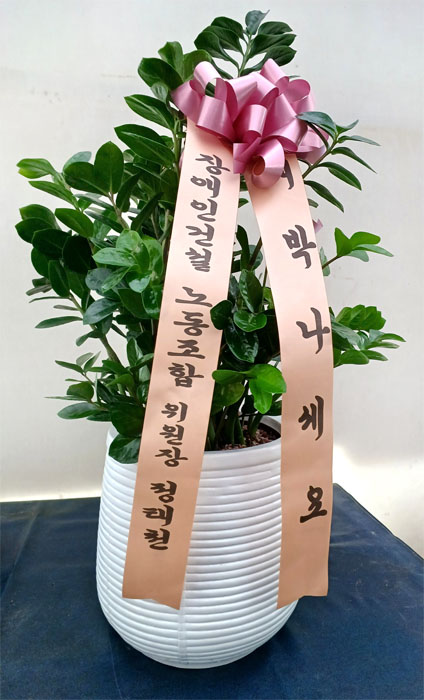 장애인건설 노동조합 위원장 정태헌
박나세요